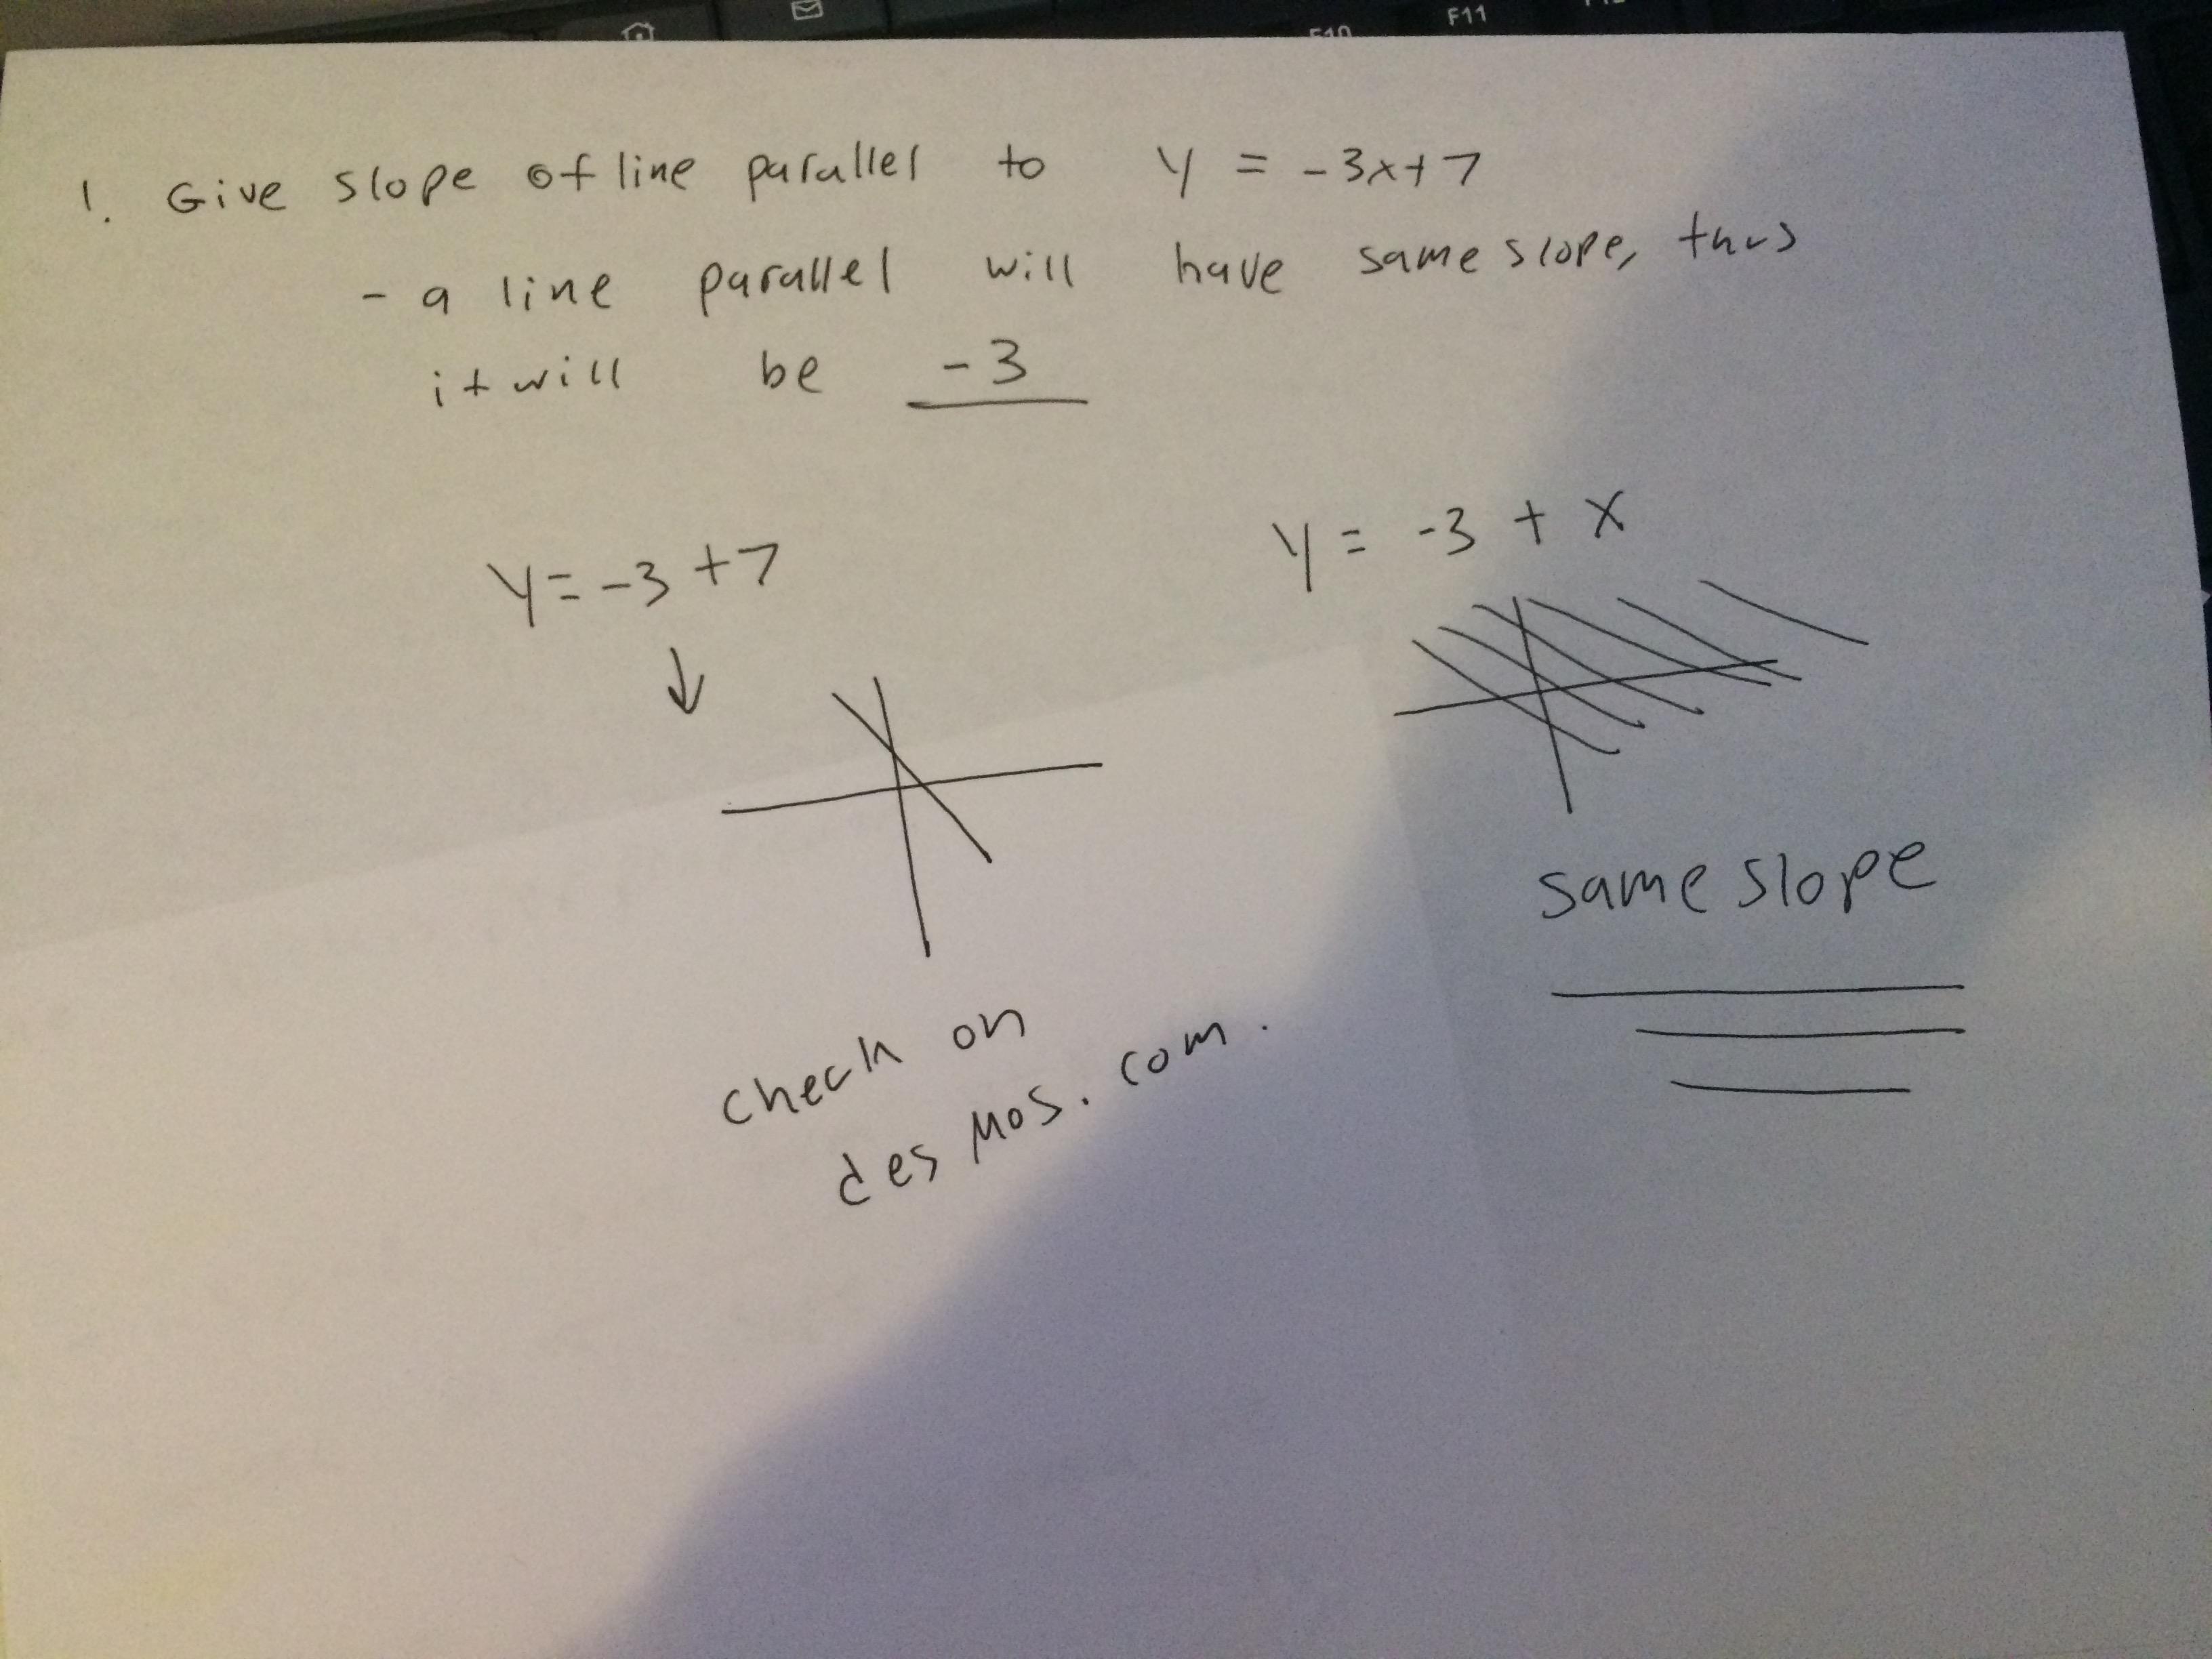 F10
F11
1. Give slope of line parallel to y = -3x+7
- a line parallel will have same slope, thus
it will be -3
y = -3 +7
y = -3 + x
same slope
check on
desmos.com.